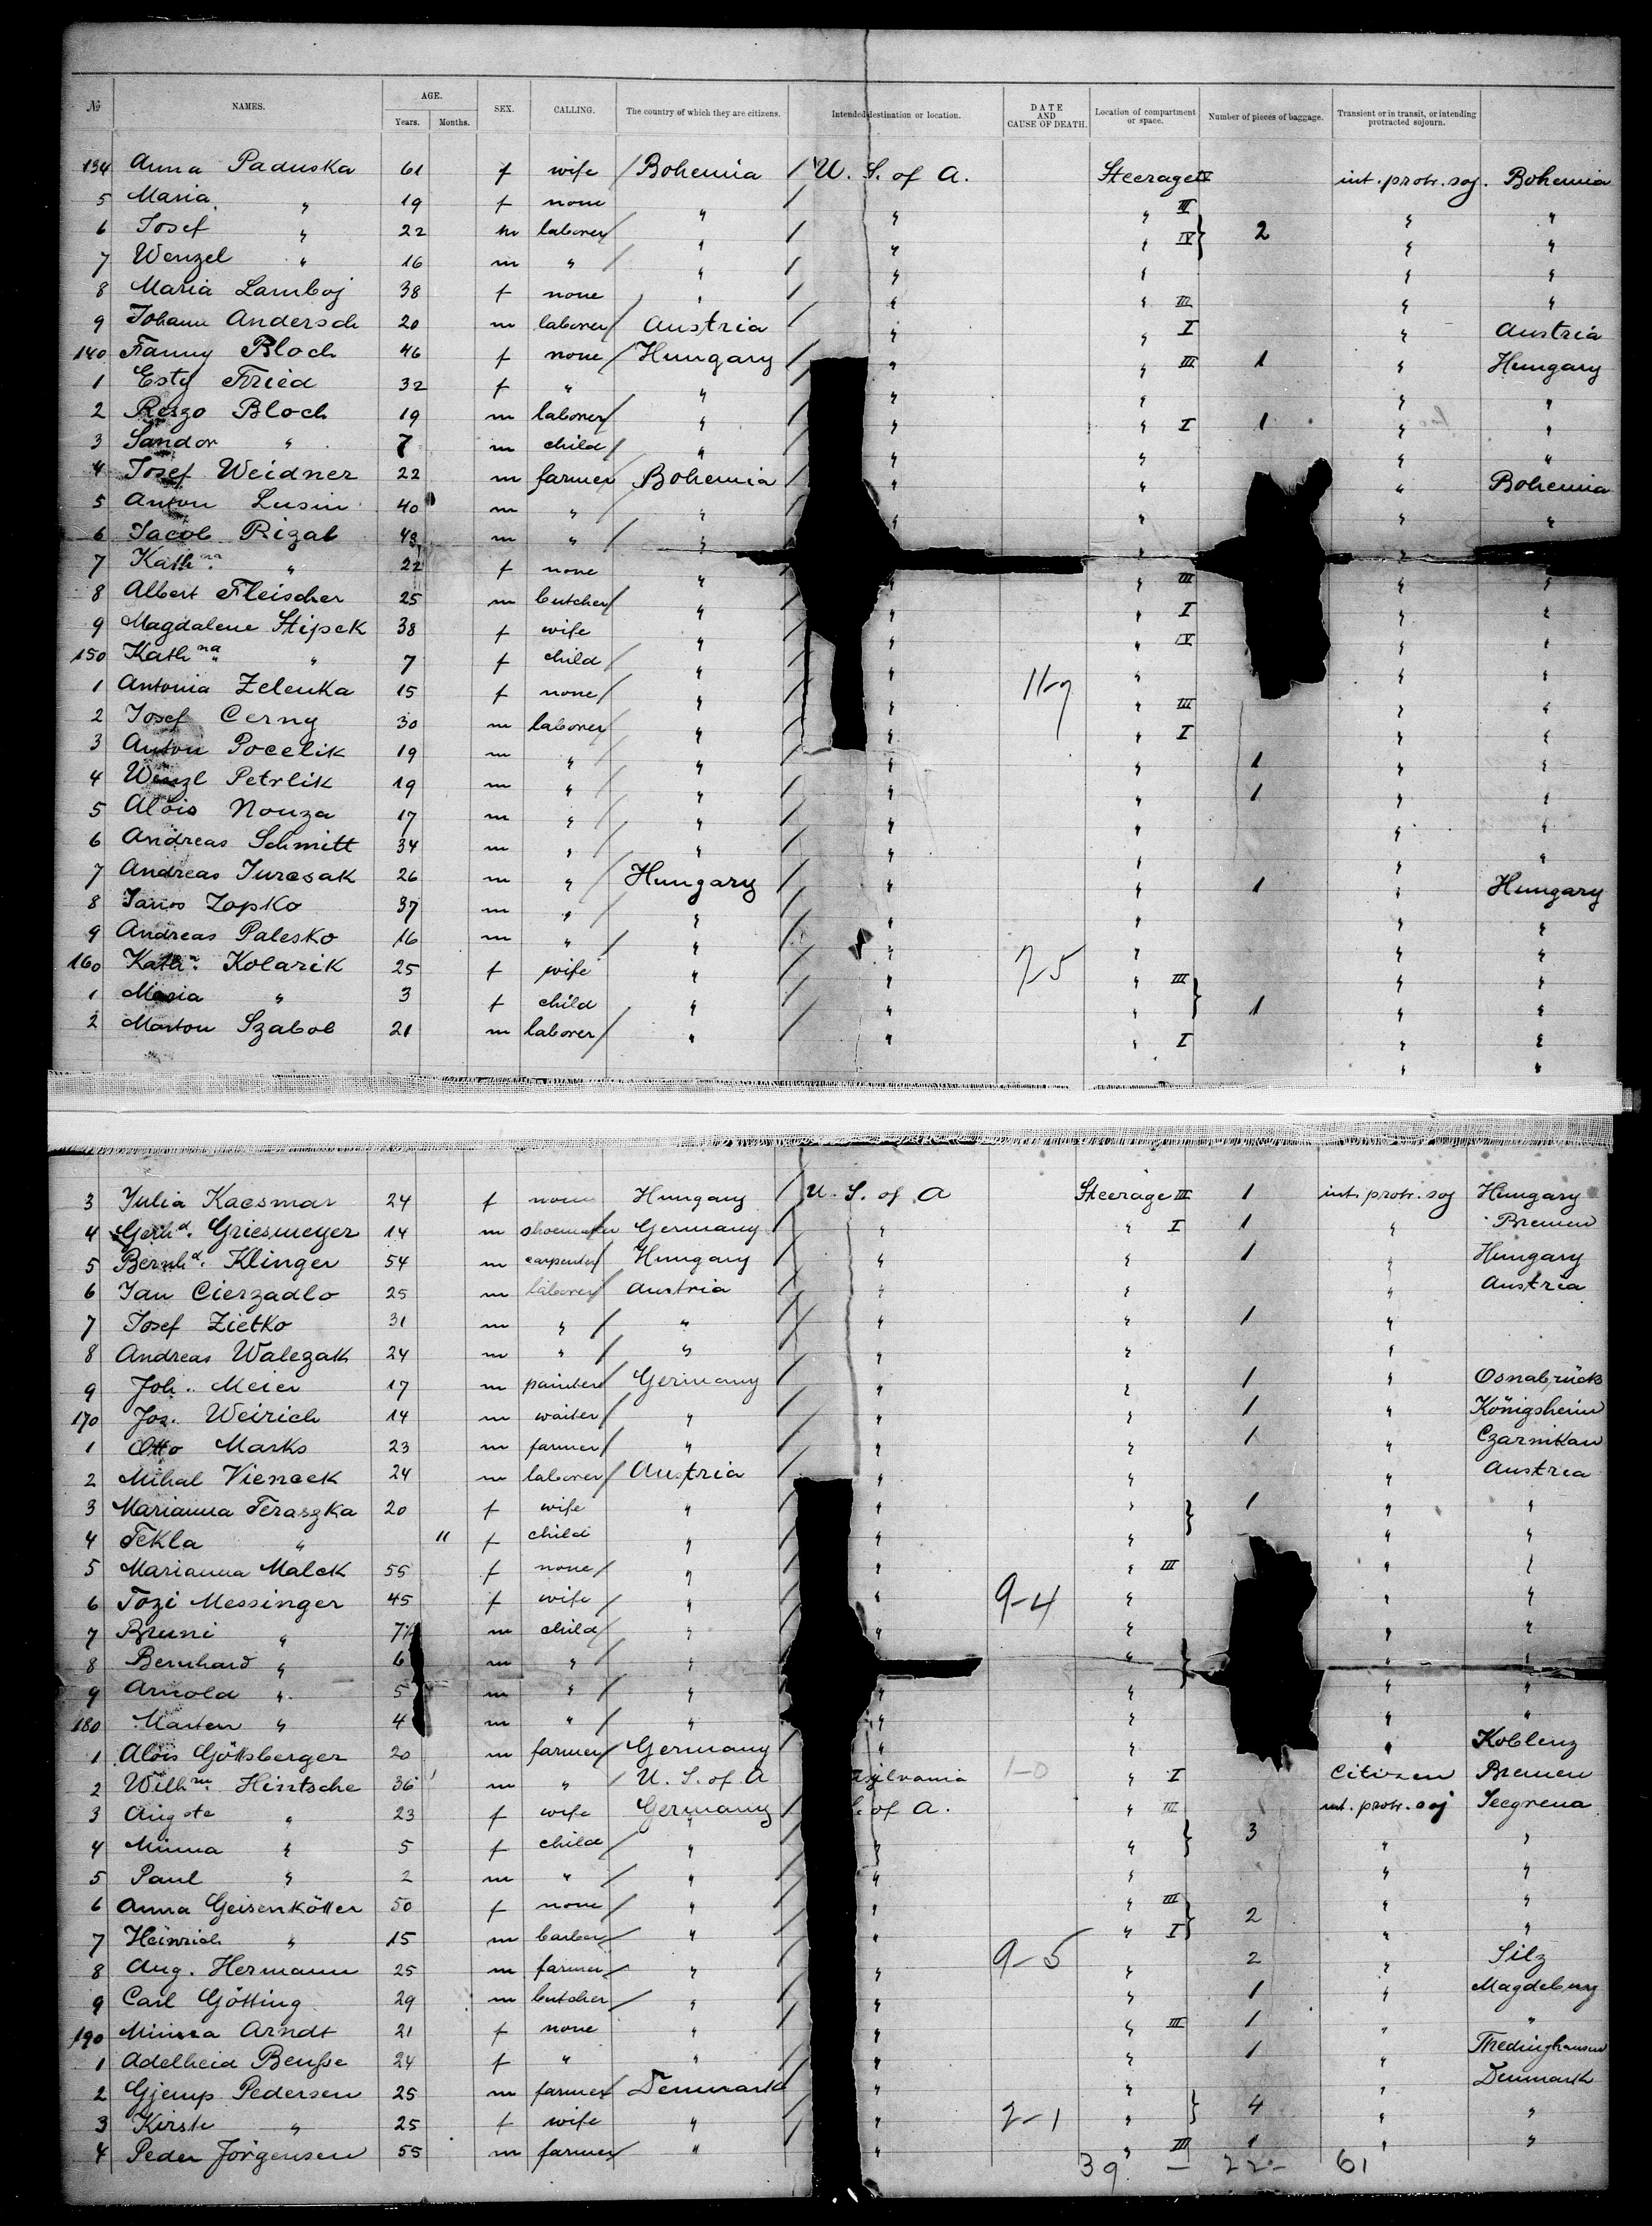 № NAMES. AGE. Years. Months. SEX. CALLING. The country of which they are citizens. Intended destination or location. DATE AND CAUSE OF DEATH. Location of compartment or space. Number of pieces of baggage. Transient or in transit, or intending protracted sojourn.
134 Anna Paduska 61 f wife Bohemia U. S. of A. Steerage IV int. protr. soj. Bohemia
5 Maria " 19 f none " " " III " "
6 Josef " 22 m laborer " " " IV 2 " "
7 Wenzel " 16 m " " " " " "
8 Maria Lamboj 38 f none " " " III " "
9 Johann Andersch 20 m laborer Austria " " I " Austria
140 Fanny Bloch 46 f none Hungary " " III 1 " Hungary
1 Esty Fried 32 f " " " " "
2 Rezso Bloch 19 m laborer " " " I 1 " "
3 Sandor " 7 m child " " " " "
4 Josef Weidner 22 m farmer Bohemia " " " Bohemia
5 Anton Lusin 40 m " " " " " "
6 Jacob Rigal 48 m " " " "
7 Kathna " 22 f none " " " III " "
8 Albert Fleischer 25 m butcher " " " I " "
9 Magdalene Stipek 38 f wife " " " IV " "
150 Kathna " 7 f child " " " " "
11-9
1 Antonia Zelenka 15 f none " " " III " "
2 Josef Cerny 30 m laborer " " " I " "
3 Anton Pocelik 19 m " " " " 1 " "
4 Wenzl Petrlik 19 m " " " " 1 " "
5 Alois Nouza 17 m " " " " " "
6 Andreas Schmitt 34 m " " " " " "
7 Andreas Jurcsak 26 m " Hungary " " 1 " Hungary
8 Janos Zapko 37 m " " " " " "
9 Andreas Palesko 16 m " " " " " "
160 Kathna Kolarik 25 f wife " " 7-5 " III " "
1 Maria " 3 f child " " " 1 " "
2 Marton Szabol 21 m laborer " " " I " "
3 Julia Kacsmar 24 f none Hungary U. S. of A Steerage III 1 int. protr. soj Hungary
4 Gerhd. Griesmeyer 14 m shoemaker Germany " " I 1 " Bremen
5 Bernhd. Klinger 54 m carpenter Hungary " " 1 " Hungary
6 Jan Cierzadlo 25 m laborer Austria " " " Austria
7 Josef Zietko 31 m " " " " 1 "
8 Andreas Walezak 24 m " " " " "
9 Joh. Meier 17 m painter Germany " " 1 " Osnabrück
170 Jos. Weirich 14 m waiter " " " 1 " Königsheim
1 Otto Marks 23 m farmer " " " 1 " Czarnikau
2 Mihal Vieneek 24 m laborer Austria " " " Austria
3 Marianna Teraszka 20 f wife " " " 1 " "
4 Tekla " 11 f child " " " " "
5 Marianna Malek 55 f none " " " III " "
6 Tozi Messinger 45 f wife " " 9-4 " " "
7 Bruni " 7½ m child " " " " "
8 Bernhard " 6 m " " " " "
9 Arnold " 5 m " " " " " "
180 Marten " 4 m " " " " " "
1 Alois Göttsberger 20 m farmer Germany " " " Koblenz
2 Wilhm. Hintsche 36 m " U. S. of A sylvania 1-0 " I Citizen Bremen
3 Augste " 23 f wife Germany of A. " III int. protr. soj Seegrena
4 Minna " 5 f child " " " 3 " "
5 Paul " 2 m " " " " " "
6 Anna Geisenkötter 50 f none " " " III 2 " "
7 Heinrich " 15 m barber " " " I " "
8 Aug. Hermann 25 m farmer " " 9-5 " 2 " Silz
9 Carl Götting 29 m butcher " " " 1 " Magdeburg
190 Minna Arndt 21 f none " " " III 1 " "
1 Adelheid Benße 24 f " " " " 1 " Thedinghausen
2 Gjemp Pedersen 25 m farmer Denmark " " " Denmark
3 Kirste " 25 f wife " " 2-1 " 4 " "
4 Peder Jörgensen 55 m farmer " " " III 1 " "
39 — 22 — 61